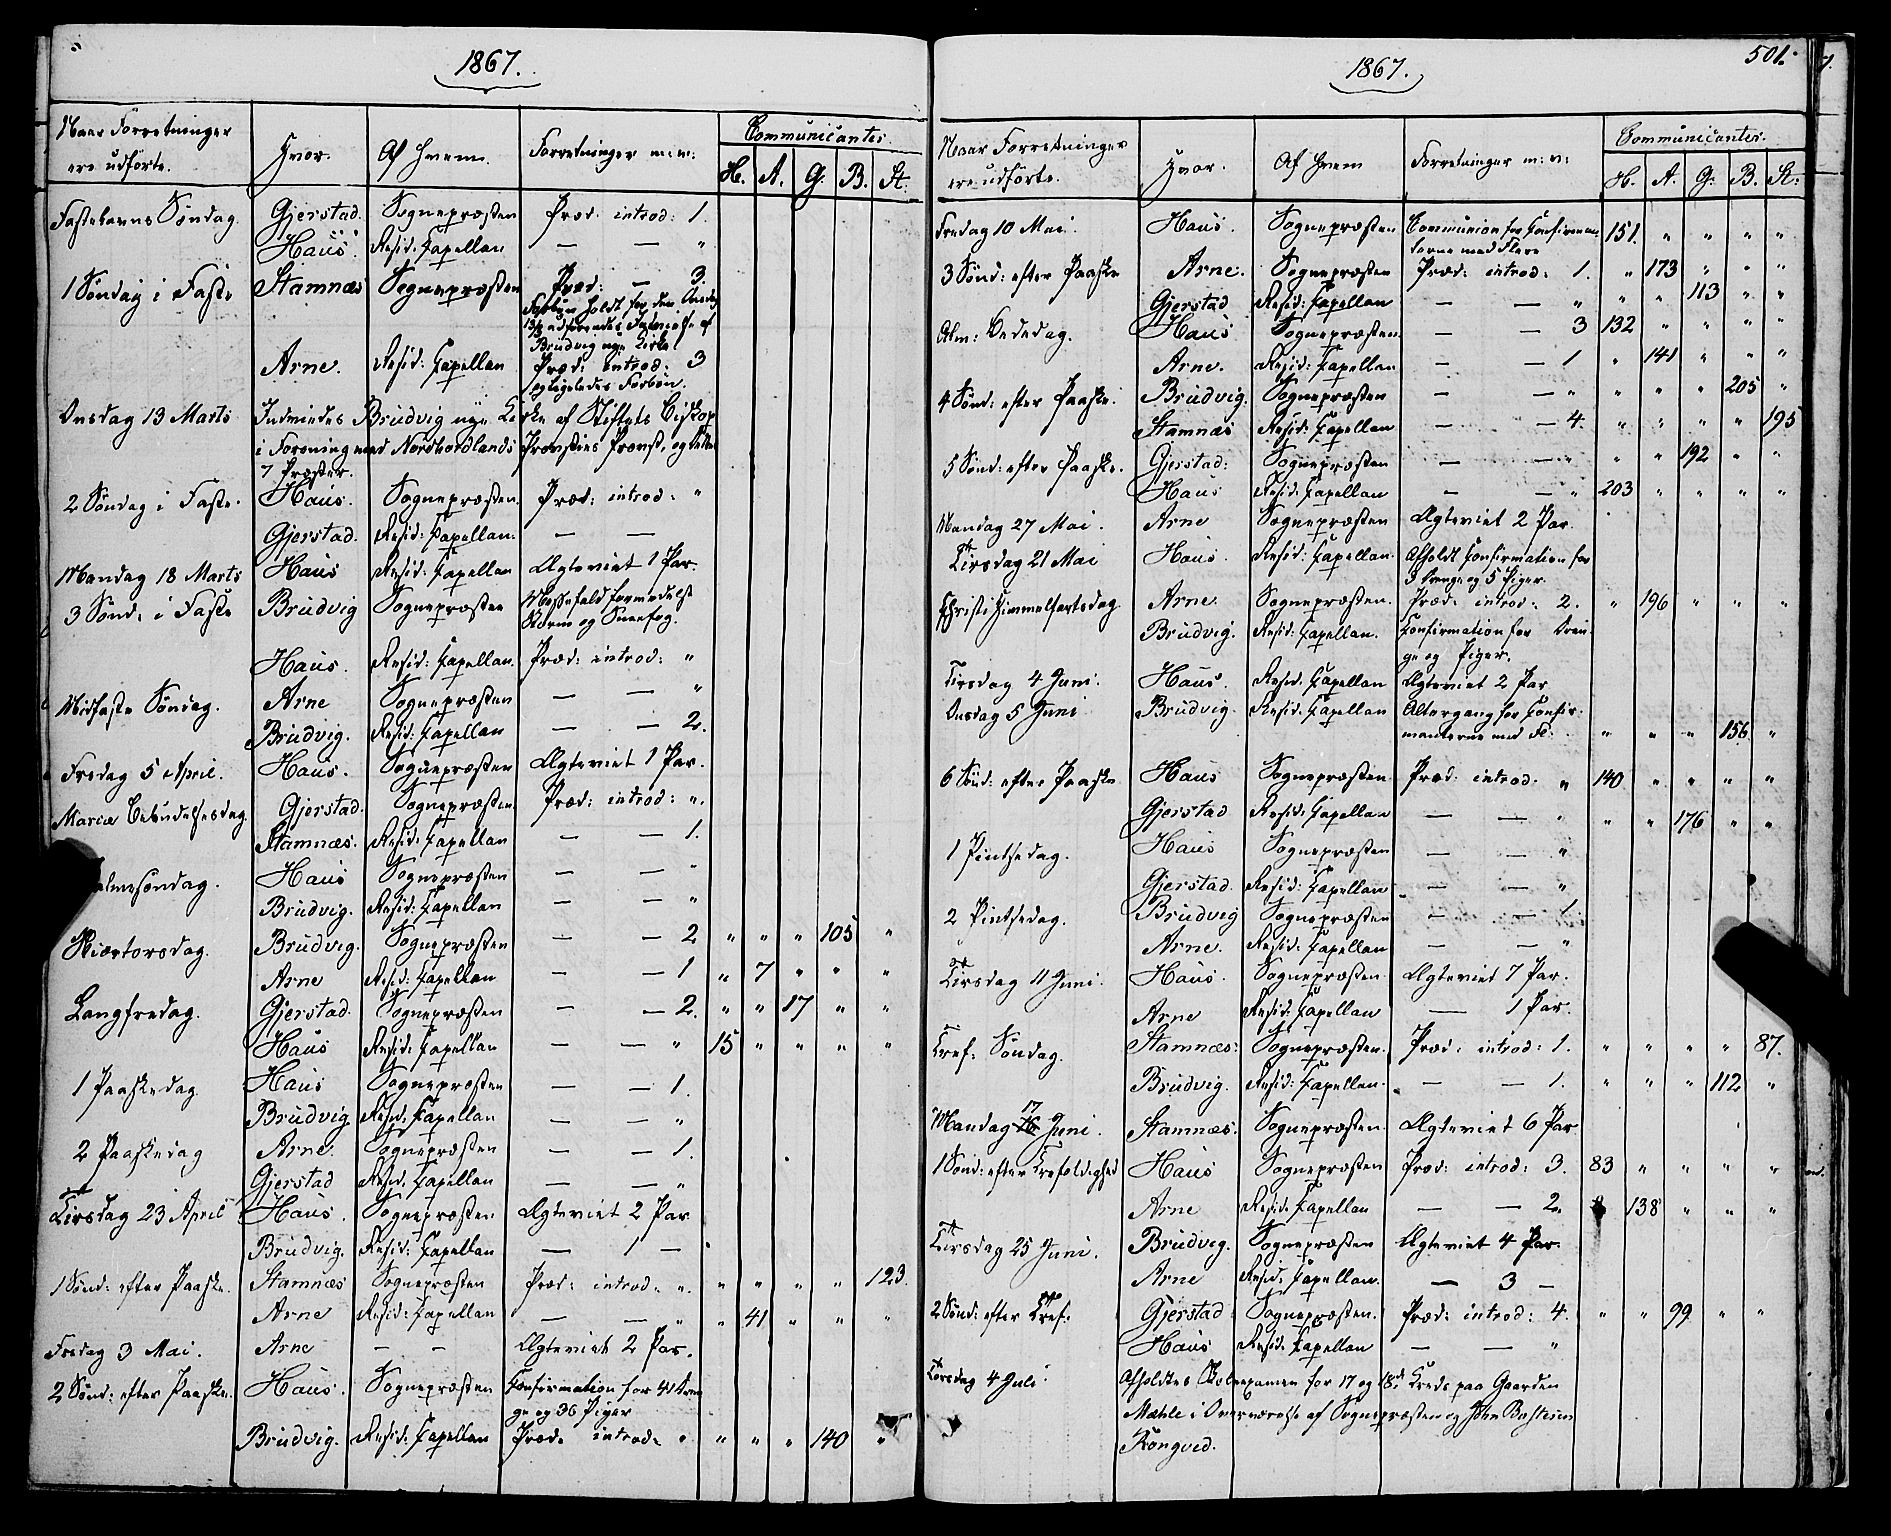 1867.
Naar Forretninger ere udførte. Hvor. Af Hvem. Forretninger m: v: Communicantes.
H. A. G. B. St:
Fastelavns Søndag. Gjerstad. Sognepræsten Præd: introd: 1.
Haus. Resid: Capellan — — "
1 Søndag i Faste Stamnæs Sognepræsten Præd: — 3.
Forbøn holdt for den Onsdag
13/3 udførendes Indvielse af
Brudvig nye Kirke
Arne. Resid: Capellan Præd: introd: 3
ligeledes Forbøn.
Onsdag 13 Marts Indviedes Brudvig nye Kirke af Stiftets Biskop
i Forening med Nordhordlands Provsties Provst, og
7 Præster.
2 Søndag i Faste. Haus. Sognepræsten. Præd: introd: "
Gjerstad. Resid: Capellan. — —
Mandag 18 Marts Haus Resid: Capellan Ægteviet 1 Par.
3 Sønd: i Faste Brudvig Sognepræsten Messefald formedelst
Storm og Sneefog.
Haus. Resid: Capellan. Præd: introd: "
Midfaste Søndag. Arne Sognepræsten — — "
Brudvig. Resid: Capellan — — 2.
Fredag 5 April. Haus. Sognepræsten Ægteviet 1 Par.
Mariæ Bebudelsesdag Gjerstad. Sognepræsten. Præd: introd: ".
Stamnæs. Resid: Capellan — — 1.
Palmesøndag. Haus Sognepræsten — — "
Brudvig. Resid: Capellan — — "
Skiærtorsdag. Brudvig. Sognepræsten — — 2 " " " 105 "
Arne Resid: Capellan — — 1 " 7 " " "
Langfredag. Gjerstad. Sognepræsten — — 2. " " 17 " "
Haus Resid: Capellan — — " 15 " " " "
1 Paaskedag. Haus Sognepræsten — — 1.
Brudvig Resid: Capellan — — "
2 Paaskedag Arne. Sognepræsten — — 1.
Gjerstad Resid: Capellan — — "
Tirsdag 23 April Haus. Sognepræsten Ægteviet 2 Par.
Brudvig. Resid: Capellan — 1 —
1 Sønd: efter Paaske. Stamnæs Sognepræsten Præd: introd: ". " " " " 123.
Arne Resid: Capellan — — " " 41 " " "
Fredag 3 Mai. Arne — — Ægteviet 2 Par.
2 Sønd: efter Paaske. Haus. Sognepræsten Confirmation for 41 Dren
ge og 36 Piger
Brudvig. Resid: Capellan Præd: introd: " " " " 140 "
1867.
501.
Naar Forretninger ere udførte. Hvor. Af Hvem Forretninger m: v: Communicantes.
H. A. G. B. St:
Fredag 10 Mai. Haus. Sognepræsten Communion for Confirman
terne med Flere 151. " " " "
3 Sønd: efter Paaske Arne. Sognepræsten Præd: introd: 1. " 173 " " "
Gjerstad Resid: Capellan — — " " " 113 " "
Alm: Bededag. Haus Sognepræsten. — — 3 132 " " " "
Arne. Resid: Capellan — — 1 " 141 " " "
4 Sønd: efter Paaske. Brudvig. Sognepræsten — — " " " " 205 "
Stamnæs Resid: Capellan — — 4. " " " " 195
5 Sønd: efter Paaske. Gjerstad: Sognepræsten — — " " " 192 " "
Haus Resid: Capellan — — " 203 " " " "
Mandag 27 Mai. Arne Sognepræsten Ægteviet 2 Par.
Tirsdag 21 Mai Haus. Resid: Capellan. Afholdt Confirmation for
3 Drenge og 5 Piger.
Christi Himmelfartsdag. Arne. Sognepræsten. Præd: introd: 2. " 196 " " "
Brudvig. Resid: Capellan. Confirmation for Dren
ge og Piger.
Tirsdag 4 Juni. Haus. Resid: Capellan Ægteviet 2 Par
Onsdag 5 Juni Brudvig. Resid: Capellan Altergang for Confir-
manterne med Fl: " " " 156 "
6 Sønd: efter Paaske Haus Sognepræsten. Præd: introd: " 140. " " " "
Gjerstad Resid: Capellan — — " " " 176 " "
1 Pintsedag. Haus Sognepræsten — — "
Gjerstad. Resid: Capellan — — "
2 Pintsedag. Brudvig Sognepræsten — — 1.
Arne. Resid: Capellan — — "
Tirsdag 11 Juni. Haus. Sognepræsten Ægteviet 7 Par.
Arne Resid: Capellan — 1 Par.
Tref: Søndag. Stamnæs: Sognepræsten. Præd: introd: 1. " " " " 87.
Brudvig. Resid: Capellan. — — 1. " " " 112 "
Mandag 17 Juni. Stamnæs. Sognepræsten. Ægteviet 6 Par
1 Sønd: efter Trefoldighed Haus Sognepræsten Præd: introd: 3. 83 " " " "
Arne Resid: Capellan — — 2. " 138 " " "
Tirsdag 25 Juni. Brudvig. Sognepræsten Ægteviet 4 Par.
Arne Resid: Capellan. — 3 —
2 Sønd: efter Tref: Gjerstad: Sognepræsten. Præd: introd: 4. " " 99. " "
Haus Resid: Capellan — — "
Torsdag 4 Juli. Afholdtes Skoleexamen for 17 og 18de Kreds paa Gaarden
Mæhle i Overværelse af Sognepræsten og John
Rongved.